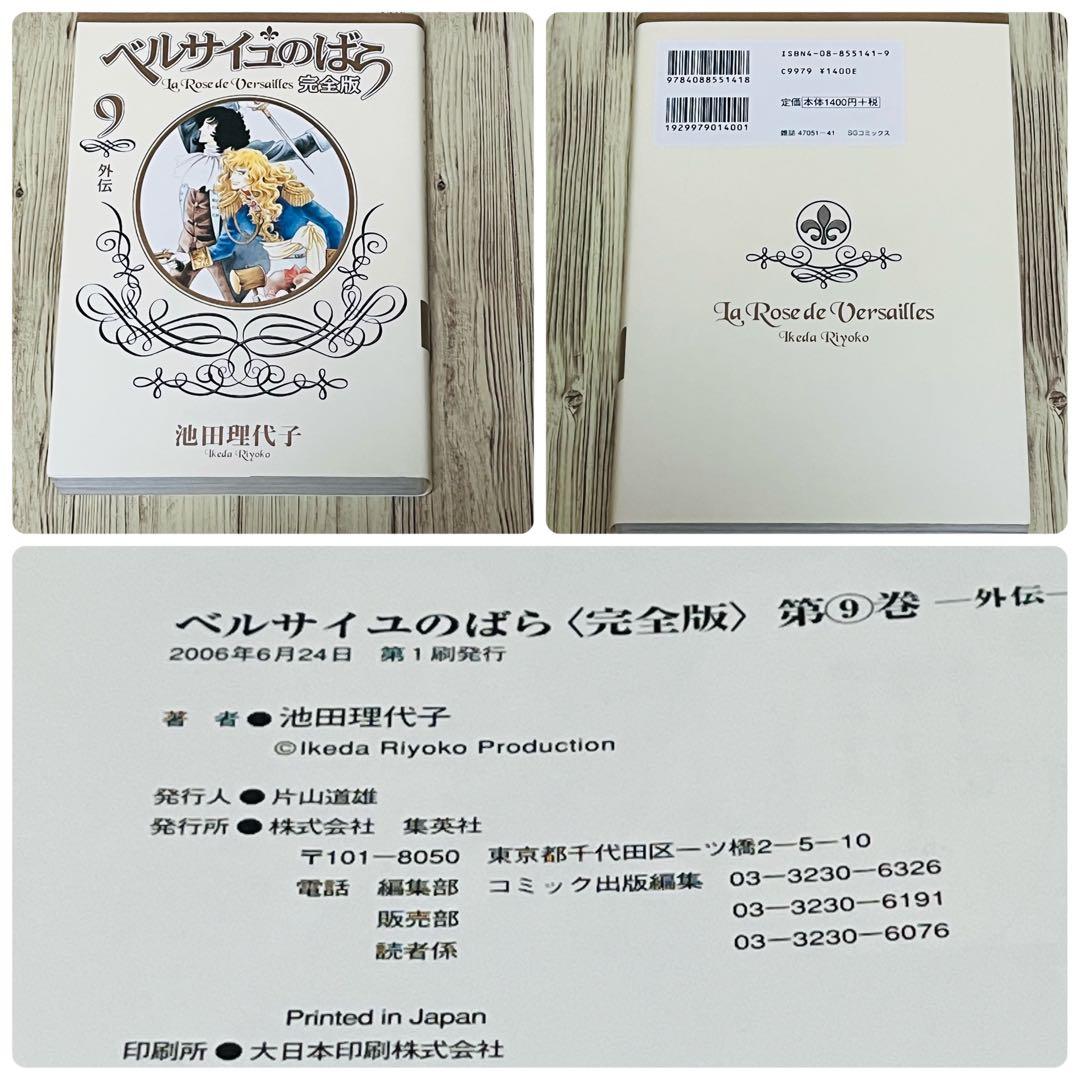 ベルサイユのばら
La Rose de Versailles 完全版
9
外伝
池田理代子
Ikeda Riyoko
ISBN4-08-855141-9
9784088551418
C9979 ¥1400E
定価 本体1400円+税
1929979014001
雑誌 47051-41 SGコミックス
La Rose de Versailles
Ikeda Riyoko
ベルサイユのばら〈完全版〉 第⑨巻 —外伝—
2006年6月24日 第1刷発行
著 者●池田理代子
©Ikeda Riyoko Production
発行人●片山道雄
発行所●株式会社 集英社
〒101-8050 東京都千代田区一ツ橋2-5-10
電話 編集部 コミック出版編集 03-3230-6326
販売部 03-3230-6191
読者係 03-3230-6076
Printed in Japan
印刷所●大日本印刷株式会社